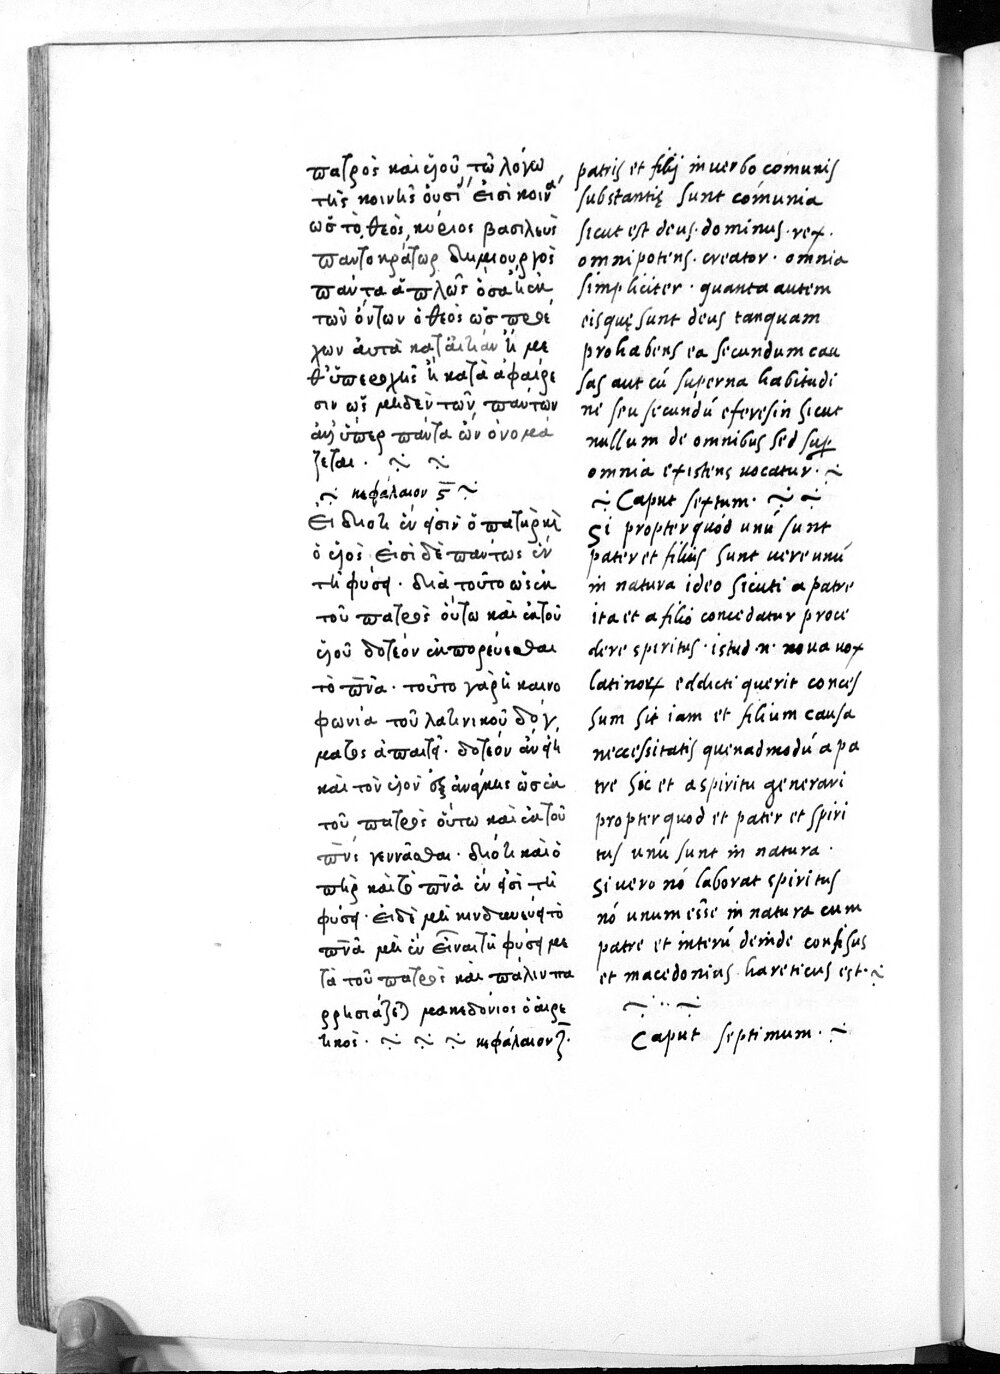 πατρὸς καὶ ὑιοῦ, τῶ λόγω
τῆς κοινῆς οὐσί εἰσὶ κοινὰ,
ὡς τὸ, θεὸς, κύριος βασιλεὺς
παντοκράτωρ δημιουργὸς
πάντα ἁπλῶς ὅσα
τῶν ὄντων ὁ θεὸς ὡς προέ
χων ἀυτὰ κατ᾽ἀιτίαν ἢ με
θ᾽ὑπεροχῆς ἢ κατὰ ἀφαίρε
σιν ὡς μηδὲν τῶν πάντων
ἀλλ᾽ὑπερ πάντα ὢν ὀνομά
ζεται.
κεφάλαιον ς
Εἰ διότι ἕν φύσιν ὁ πατὴρ κὶ
ὁ ὑιός εἰσὶ δὲ πάντως ἕν
τῆ φύσει. διὰ τοῦτο ὡς ἐκ
τοῦ πατρὸς ὅυτω καὶ ἐκ τοῦ
ὑιοῦ δοτέον ἐκπορέυεσθαι
τὸ πνᾶ. τοῦτο γὰρ ἡ καινο
φωνία τοῦ λατινικοῦ δόγ,
ματος ἀπαιτεῖ. δοτέον ἂν
καὶ τὸν ὑιὸν ἐξ ἀνάγκης ὡς ἐκ
τοῦ πατρὸς ὅυτω καὶ ἐκ τοῦ
πνς γεννᾶσθαι. διότι καὶ ὁ
πηρ καὶ τὸ πνᾶ ἕν εἰσι τῆ
φύσει. εἰδὲ μὴ κινδυνεύει τὸ
πνᾶ μὴ ἕν εἶναι τῆ φύσει με
τὰ τοῦ πατρὸς καὶ πάλιν πα
ρρησιάζετ) μακεδόνιος ὁ ἁιρε
τικός. κεφάλαιον ζ.
patris et filij in uerbo comunis
substantię sunt comunia
sicut est deus. dominus. rex.
omnipotens. creator. omnia
simpliciter. quanta autem
eisquę sunt deus tanquam
prohabens ea secundum cau
sas aut cú superna habitudi
ne seu secundú eferesin sicut
nullum de omnibus sed sup
omnia existens uocatur.
Caput sextum.
Si propter quod unú sunt
pater et filius sunt uere unú
in natura ideo sicuti a patre
ita et a filio concedatur proce
dere spiritus. istud n. noua uox
latinorum eddicti querit conces
sum sit iam et filium causa
necessitatis quemadmodú a pa
tre sic et a spiritu generari
propter quod et pater et spiri
tus unú sunt in natura.
Si uero nó laborat spiritus
nó unum esse in natura cum
patre et interú deinde confisus
et macedonius hareticus est.
Caput septimum.